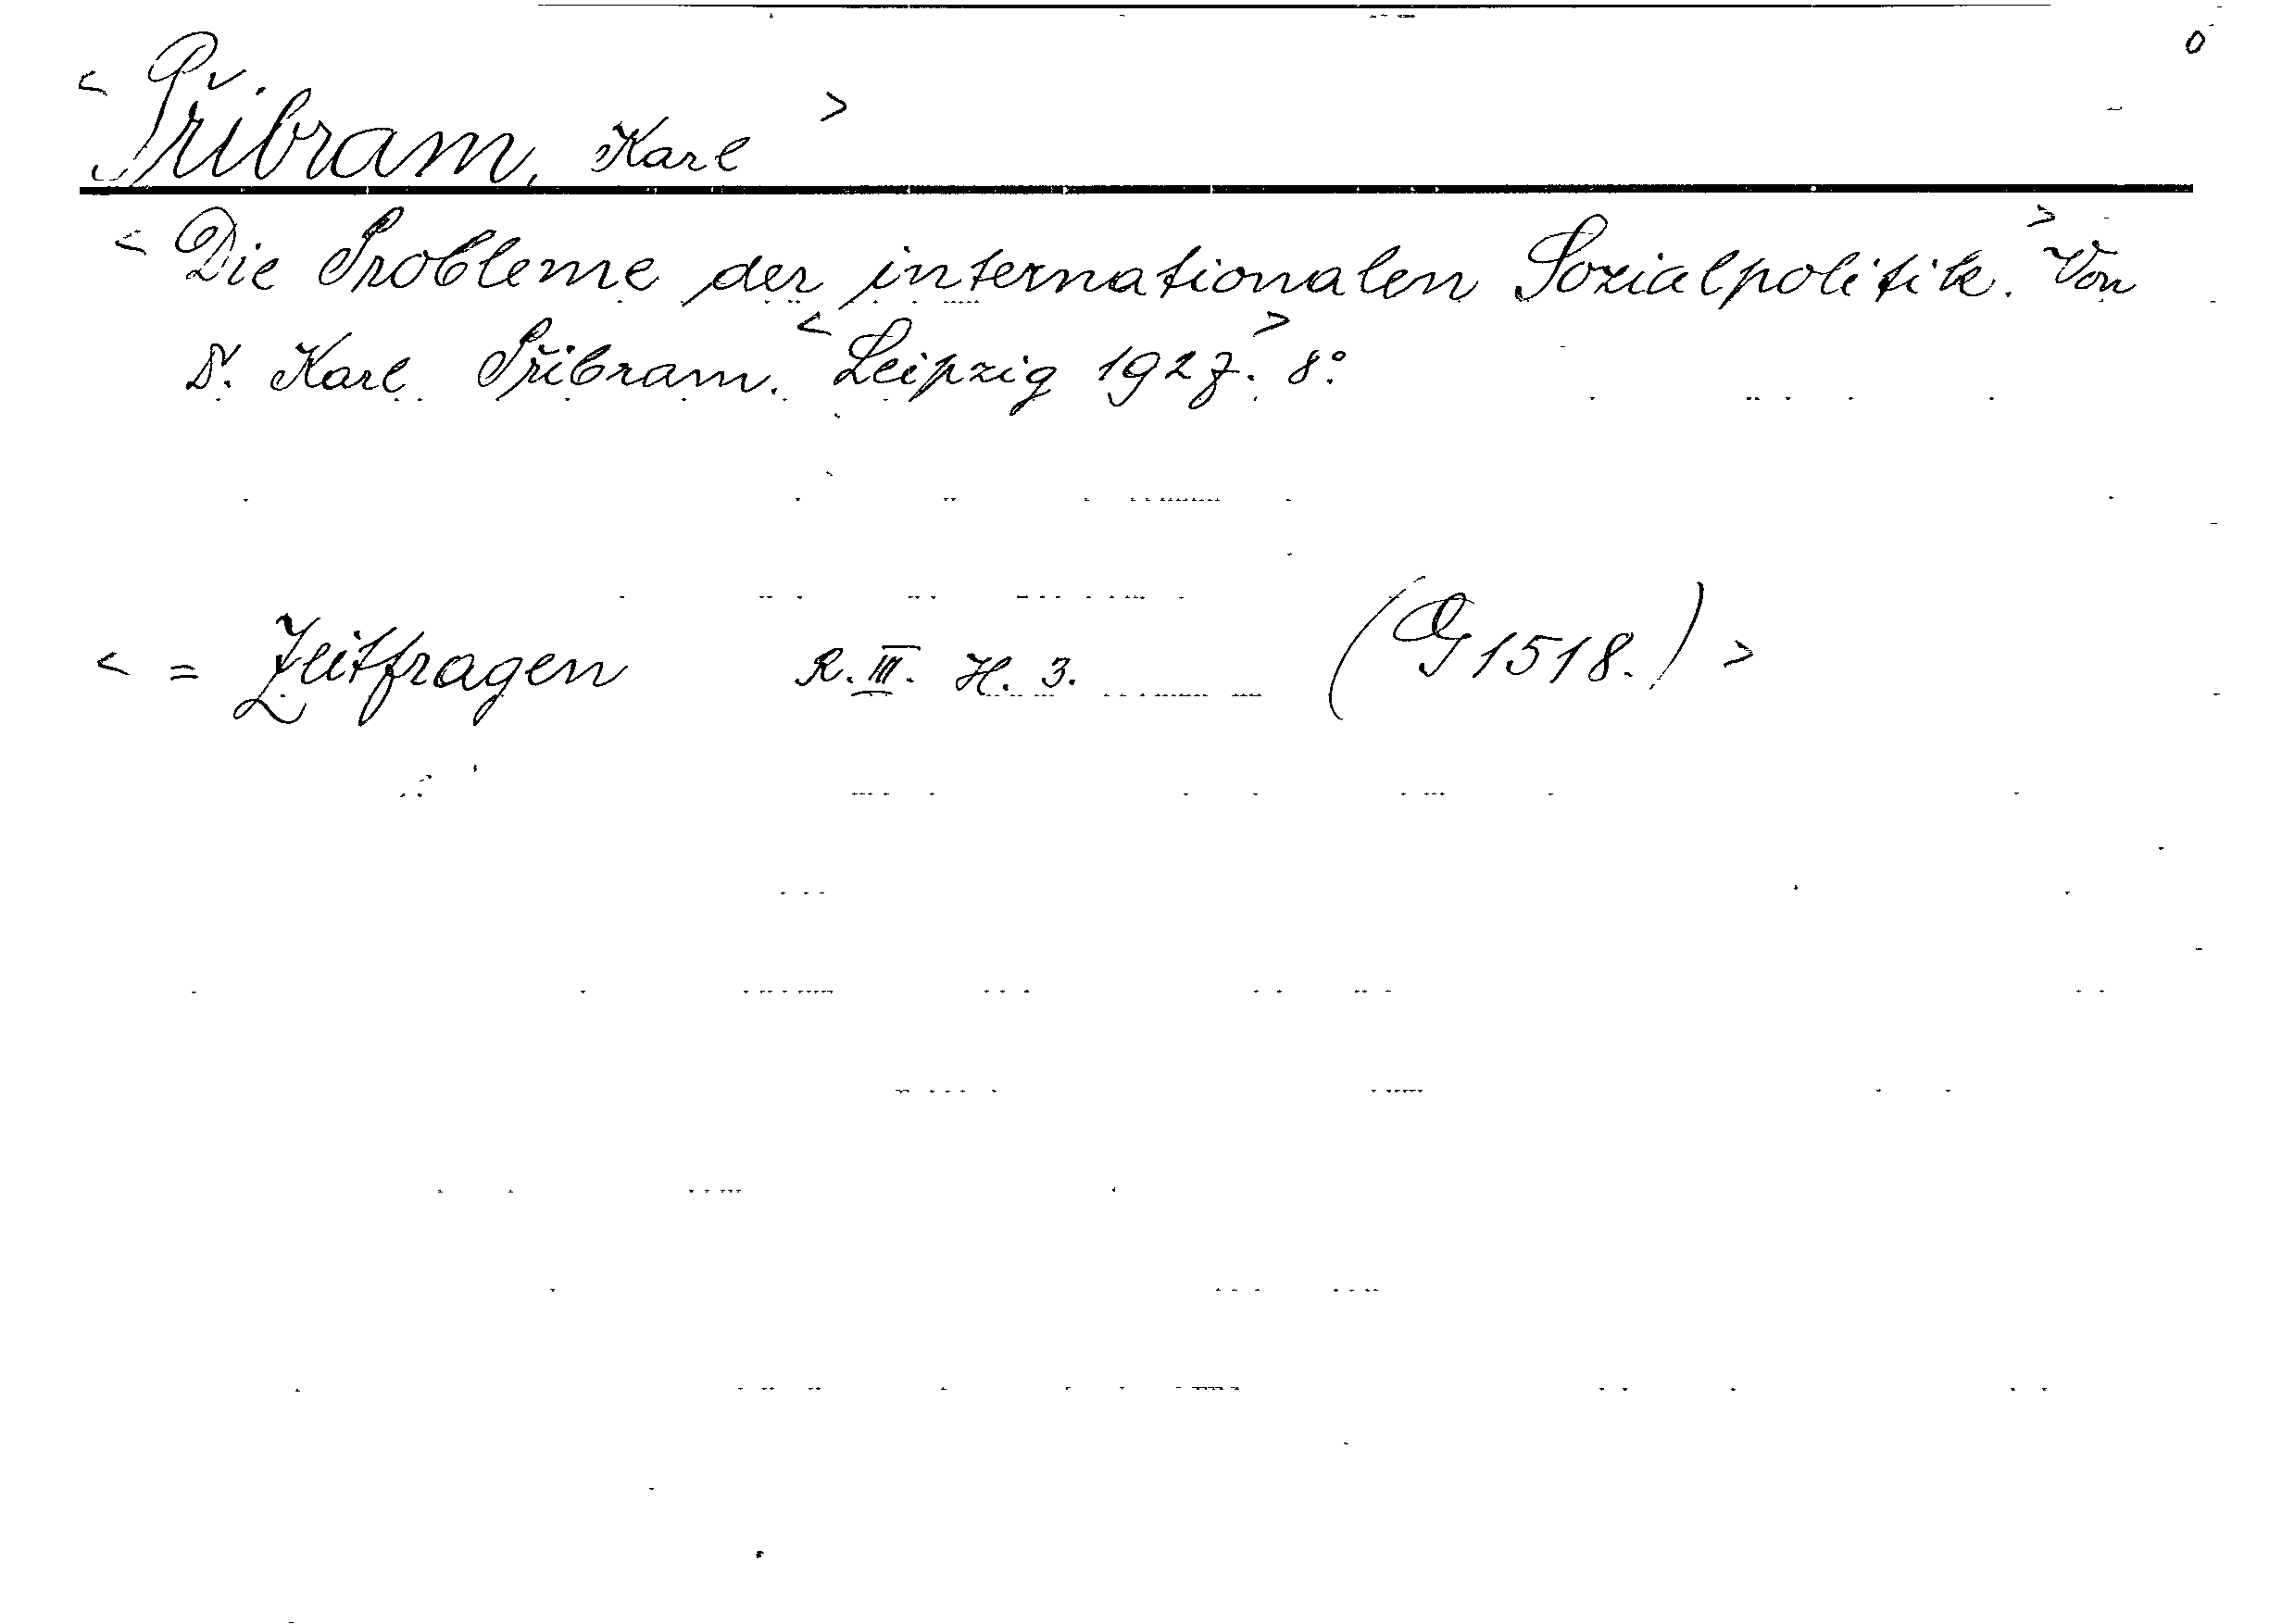 0
< Přibram, Karl >
< Die Probleme der internationalen Sozialpolitik. > Von
Dr. Karl Přibram. < Leipzig 1927. > 8°.
< = Zeitfragen R. III. H. 3. (G 1518.) >